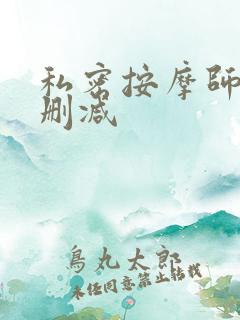 私密按摩師
刪減
鳥丸太郎
未经同意禁止转载